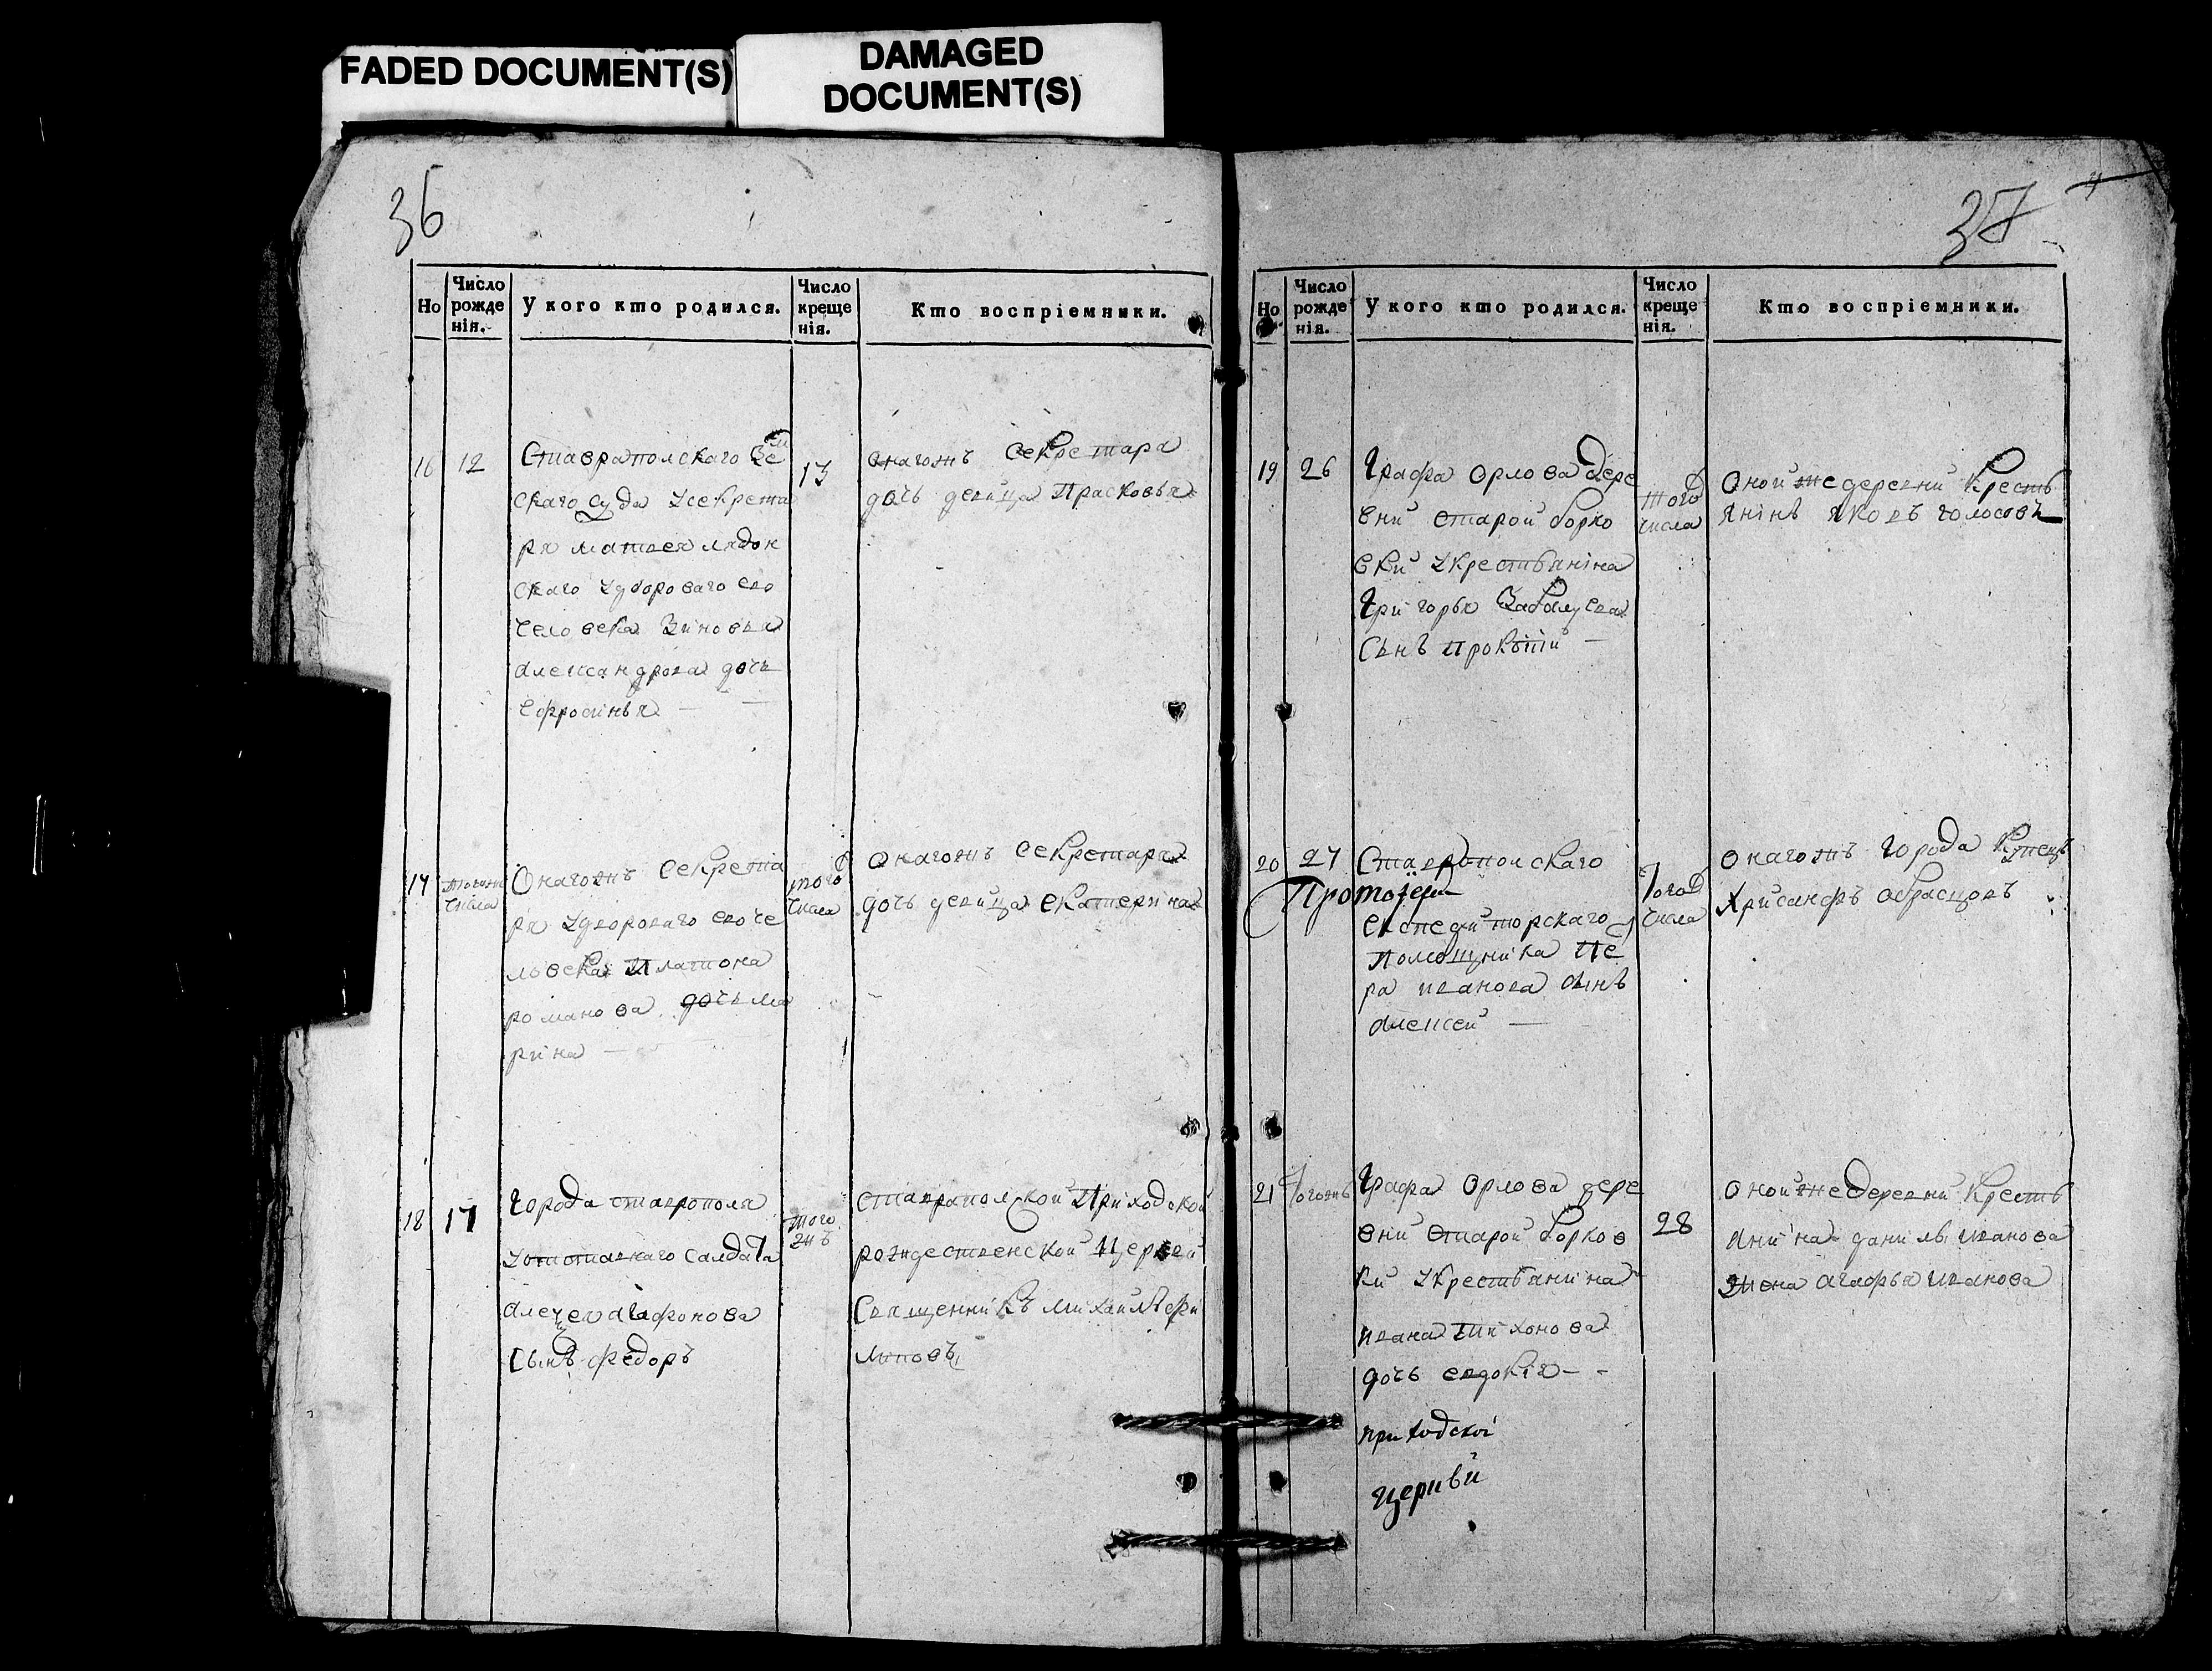 FADED DOCUMENT(S)
DAMAGED
DOCUMENT(S)
36
Но
Число
рожде
нія.
У кого кто родился.
Число
креще
нія.
Кто воспріемники.
16
12
Ставрапольскаго Зем
скаго суда Усекрета
ря матвея лядон
скаго Удвороваго ево
человека Зиновья
александрова дочь
ефросинья
13
онагожъ Секретара
дочь девица Прасковья
17
тогожъ
числа
Онагожъ Секрета
ря Удвороваго ево че
ловека Платона
романова дочь ма
рина
того
числа
Онагожъ Секретаря
дочь девица екатерина
18
17
Города ставрополя
Уотставнаго салдата
алецея агафонова
Сынъ федоръ
того
жъ
ставрапольской Приходской
рождественской Церкви
Священникъ михаилъ фи
липовъ
37
Но
Число
рожде
нія.
У кого кто родился.
Число
креще
нія.
Кто воспріемники.
19
26
Графа Орлова дере
вни старой борко
вки Укрестьянина
Григорья Забалуева
Сынъ Прокъпий
того
числа
Оной же деревни Кресть
янинъ Яковъ голосовъ
20
27
Ставропольскаго
Протоіереи
експедиторскаго
Помощника Пе
ра иванова сынъ
алексей
Того
числа
онагожъ города Купецъ
Хрисанфъ образцовъ
21
Тогожъ
Графа Орлова дере
вни старой борков
ки Укрестьянина
ивана Тихонова
дочь евдокія
приходской
церкви
28
оной же деревни Кресть
янина данилы иванова
жена агафья иванова